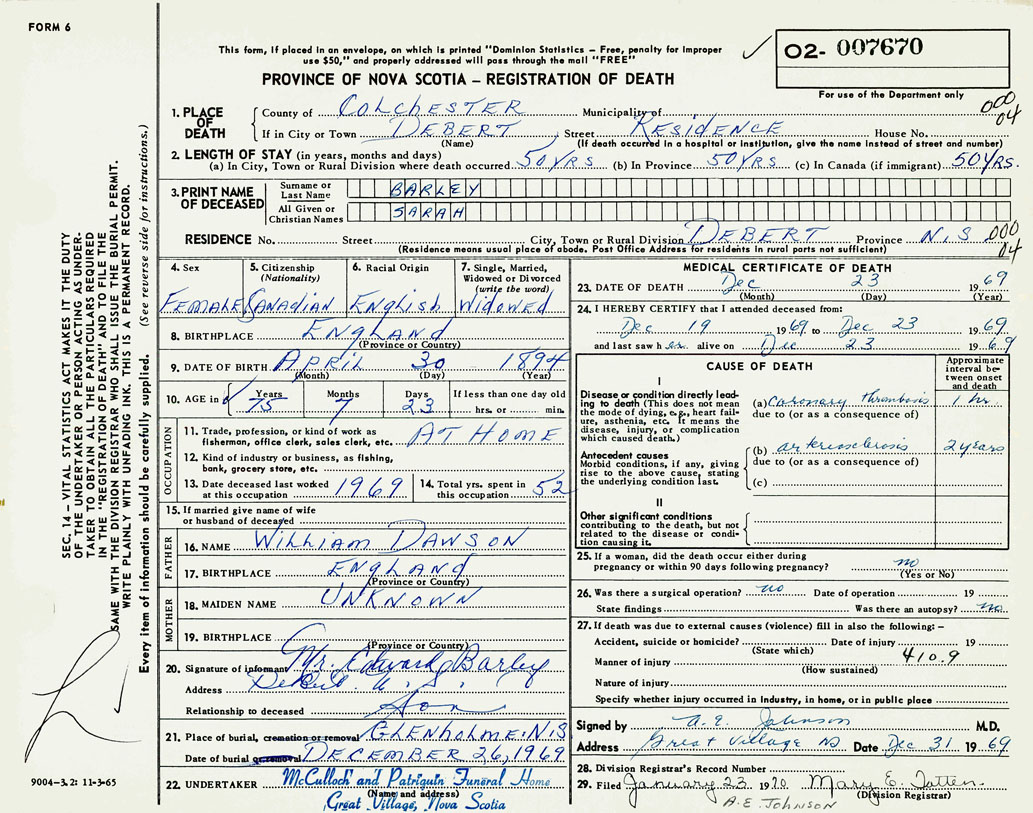 FORM 6
This form, if placed in an envelope, on which is printed "Dominion Statistics – Free, penalty for improper
use $50," and properly addressed will pass through the mail "FREE"
PROVINCE OF NOVA SCOTIA – REGISTRATION OF DEATH
02- 007670
For use of the Department only
000
04
1. PLACE OF DEATH
County of COLCHESTER Municipality of
If in City or Town DEBERT Street RESIDENCE House No.
(Name) (If death occurred in a hospital or institution, give the name instead of street and number)
2. LENGTH OF STAY (in years, months and days)
(a) In City, Town or Rural Division where death occurred 50 YRS (b) In Province 50 YRS (c) In Canada (if immigrant) 50 YRS.
3. PRINT NAME OF DECEASED
Surname or Last Name BARLEY
All Given or Christian Names SARAH
RESIDENCE No. Street City, Town or Rural Division DEBERT Province N.S 000
04
(Residence means usual place of abode. Post Office Address for residents in rural parts not sufficient)
4. Sex
Female
5. Citizenship
(Nationality)
Canadian
6. Racial Origin
English
7. Single, Married,
Widowed or Divorced
(write the word)
Widowed
8. BIRTHPLACE ENGLAND
(Province or Country)
9. DATE OF BIRTH APRIL 30 1894
(Month) (Day) (Year)
10. AGE in Years Months Days If less than one day old
75 7 23 hrs. or min.
OCCUPATION
11. Trade, profession, or kind of work as
fisherman, office clerk, sales clerk, etc. AT HOME
12. Kind of industry or business, as fishing,
bank, grocery store, etc.
13. Date deceased last worked
at this occupation 1969
14. Total yrs. spent in
this occupation 52
15. If married give name of wife
or husband of deceased
FATHER
16. NAME WILLIAM DAWSON
17. BIRTHPLACE ENGLAND
(Province or Country)
MOTHER
18. MAIDEN NAME UNKNOWN
19. BIRTHPLACE
(Province or Country)
20. Signature of informant Mr. Edward Barley
Address Debert N.S.
Relationship to deceased Son
21. Place of burial, cremation or removal GLENHOLME: N.S
Date of burial or removal DECEMBER 26, 1969
22. UNDERTAKER McCulloch and Patriquin Funeral Home
(Name and address)
Great Village, Nova Scotia
MEDICAL CERTIFICATE OF DEATH
23. DATE OF DEATH Dec 23 1969
(Month) (Day) (Year)
24. I HEREBY CERTIFY that I attended deceased from:
Dec 19 1969 to Dec 23 1969
and last saw her alive on Dec 23 1969
CAUSE OF DEATH
Approximate
interval be-
tween onset
and death
I
Disease or condition directly lead-
ing to death (This does not mean
the mode of dying, e.g., heart fail-
ure, asthenia, etc. It means the
disease, injury, or complication
which caused death.)
(a) Coronary thrombosis 1 hr.
due to (or as a consequence of)
Antecedent causes
Morbid conditions, if any, giving
rise to the above cause, stating
the underlying condition last.
(b) arteriosclerosis 2 years
due to (or as a consequence of)
(c)
II
Other significant conditions
contributing to the death, but not
related to the disease or condi-
tion causing it.
25. If a woman, did the death occur either during
pregnancy or within 90 days following pregnancy? no
(Yes or No)
26. Was there a surgical operation? no Date of operation 19
State findings Was there an autopsy? no
27. If death was due to external causes (violence) fill in also the following: –
Accident, suicide or homicide? Date of injury 19
(State which)
410.9
Manner of injury
(How sustained)
Nature of injury
Specify whether injury occurred in industry, in home, or in public place
Signed by A. E. Johnson M.D.
Address Great Village NS Date Dec 31 1969
28. Division Registrar's Record Number
29. Filed January 23 1970 Mary E. Totten
(Division Registrar)
A.E. JOHNSON
SEC. 14 – VITAL STATISTICS ACT MAKES IT THE DUTY
OF THE UNDERTAKER OR PERSON ACTING AS UNDER-
TAKER TO OBTAIN ALL THE PARTICULARS REQUIRED
IN THE "REGISTRATION OF DEATH" AND TO FILE THE
SAME WITH THE DIVISION REGISTRAR WHO SHALL ISSUE THE BURIAL PERMIT.
WRITE PLAINLY WITH UNFADING INK. THIS IS A PERMANENT RECORD.
Every item of information should be carefully supplied. (See reverse side for instructions.)
9004–3.2: 11-3-65